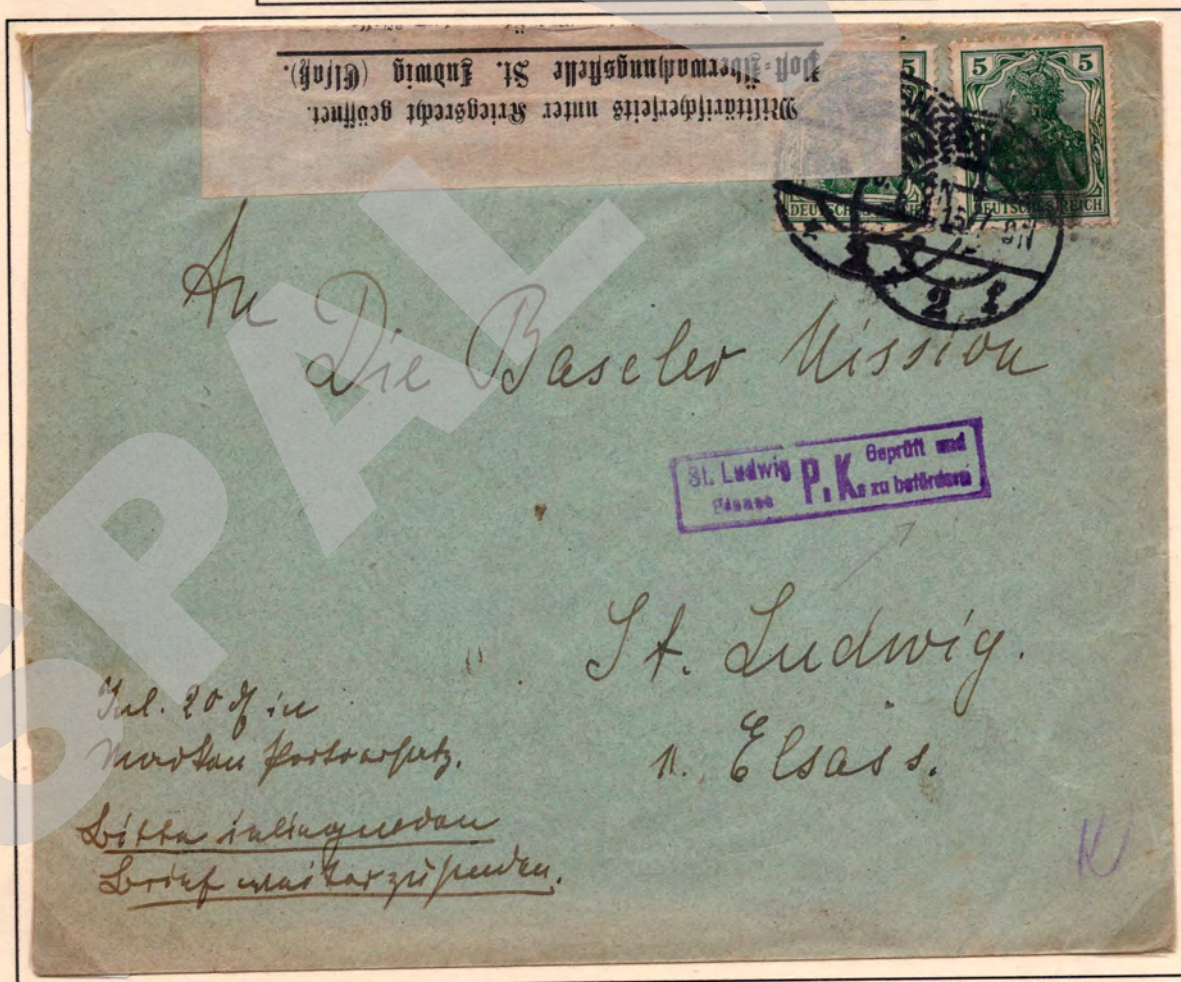 Militärischerseits unter Kriegsrecht geöffnet.
Post-Überwachungsstelle St. Ludwig (Elsaß).
5 5 5
DEUTSCHES REICH
2
An
Die Baseler Mission
St. Ludwig P. K. Geprüft und
Elsass zu befördern
St. Ludwig.
Elsass.
Inl. 20 ₰ in
Marken Portoersatz.
Bitte inliegenden
Brief weiterzusenden.
SPAL